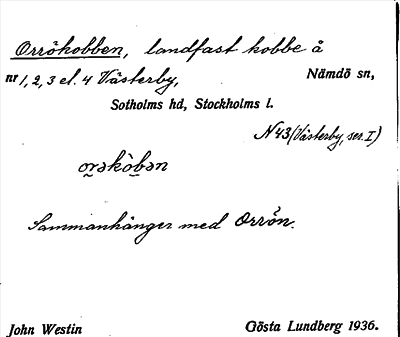 Orrökobben, landfast kobbe å
nr 1, 2, 3 el. 4 Västerby, Nämdö sn,
Sotholms hd, Stockholms l.
N 43 (Västerby, ser. I)
orəkòbən
Sammanhänger med Orrön.
John Westin Gösta Lundberg 1936.